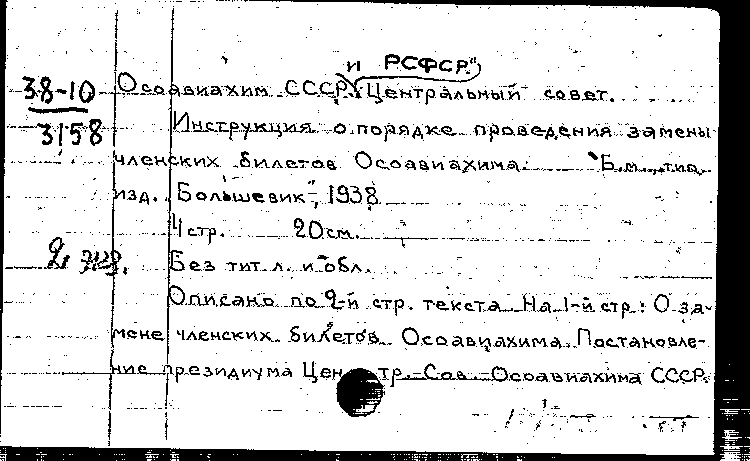 и РСФСР."
38-10 Осоавиахим СССР. Центральный совет.
3158 Инструкция о порядке проведения замены
членских билетов Осоавиахима. Б.м., тип.
изд. "Большевик", 1938
4 стр. 20 см.
Без тит. л. и обл.
Описано по 2-й стр. текста. На 1-й стр.: О за-
мене членских билетов Осоавиахима. Постановле-
ние президиума Центр. Сов. Осоавиахима СССР.